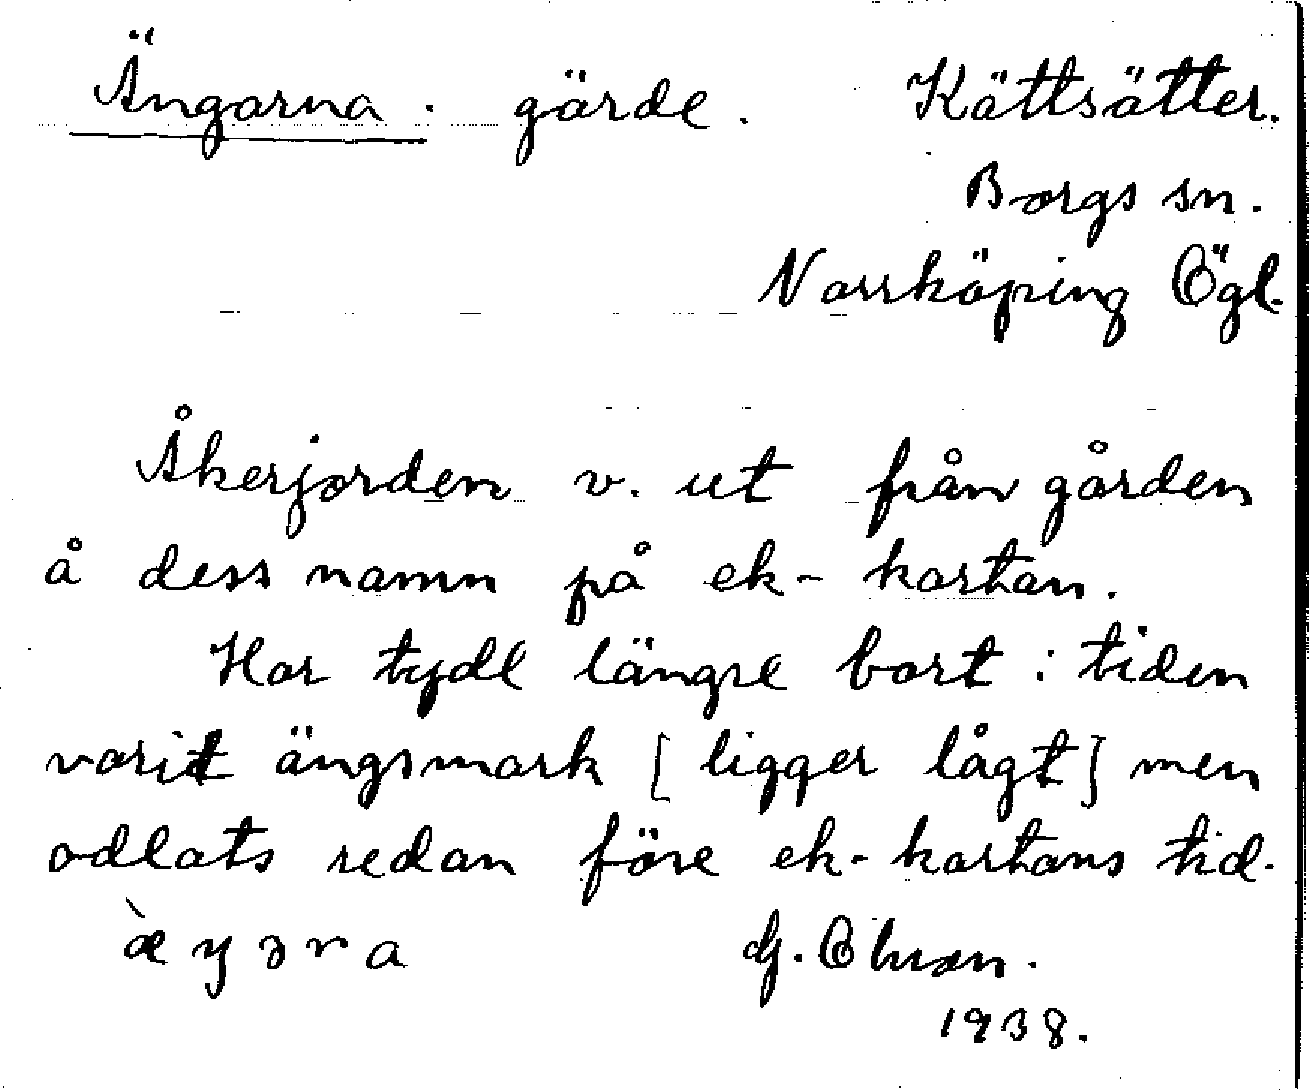 Ängarna. gärde. Kättsätter.
Borgs sn.
Norrköping Ögl.
Åkerjorden v. ut från gården
å dess namn på ek-kartan.
Har tydl längre bort i tiden
varit ängsmark [ligger lågt] men
odlats redan före ek-kartans tid.
æ̀ŋəra G. Olsson.
1938.